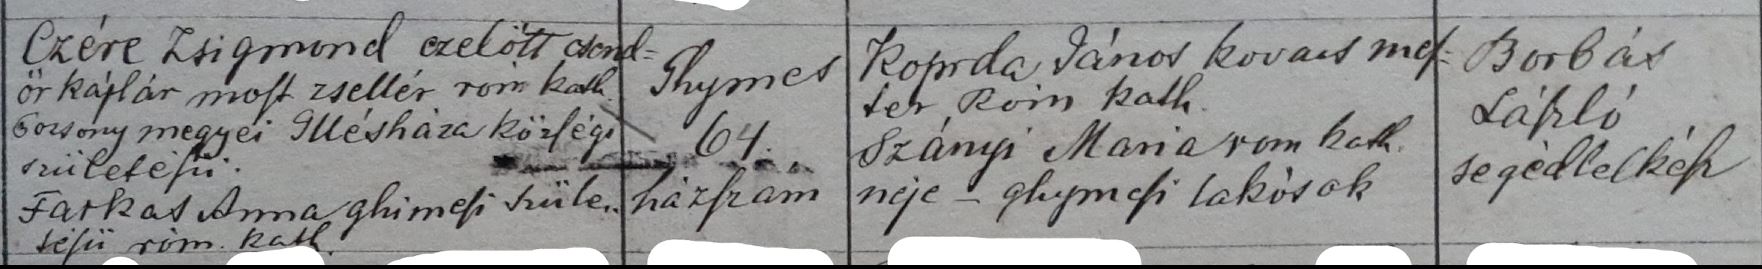 Czére Zsigmond ezelőtt csend=
őr káplár most zsellér róm kath.
Pozsony megyei Illésháza községi
születésű.
Farkas Anna ghimesi szüle-
tésű róm. kath.
Ghymes
64.
házszam
Koprda János kovacs mes=
ter Róm kath.
Szányi Maria rom kath.
neje – ghymesi lakósok
Borbás
László
segédlelkész